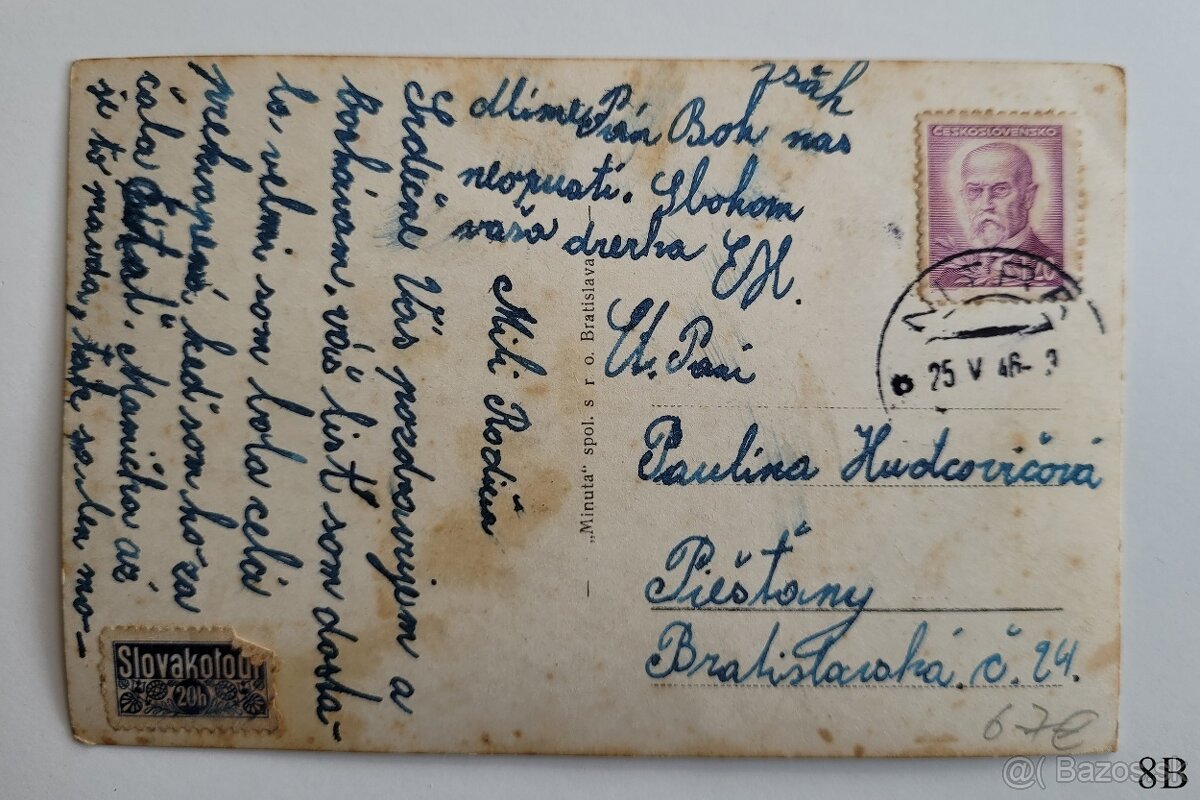 Milí Rodiča
Srdečne Vás pozdravujem a
boskávam, váš list som dosta-
la, velmi som bola celá
prekvapená, keď som ho za
čala čítať. Mamička až
je to pravda, tak sa len mo-
dlime Pán Boh nas
neopustí. Sbohom
vaša dcerka EM.
"Minuta" spol. s r. o. Bratislava
ČESKOSLOVENSKO
25 V 46
Ct. Pani
Paulína Hudcovičová
Piešťany
Bratislavská č. 24.
Slovakotour
20h
67€
@( Bazos.sk
8B